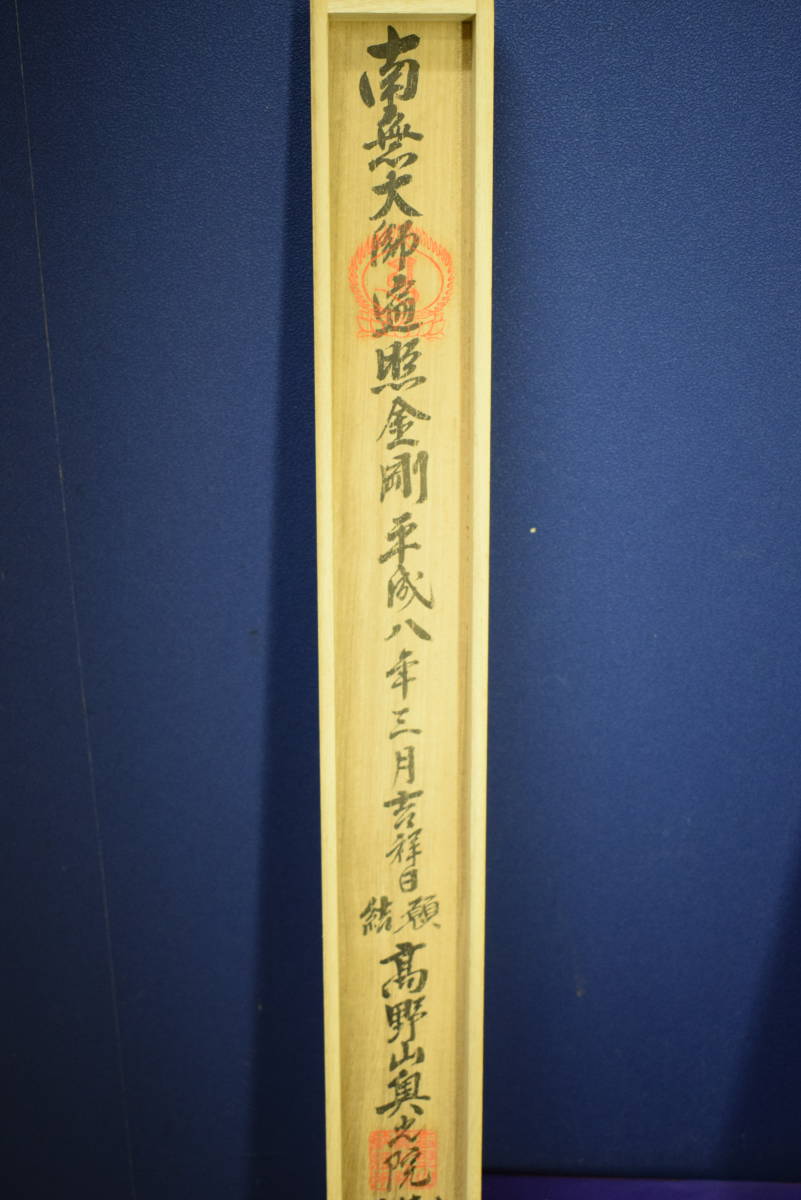 南無大師遍照金剛 平成八年三月吉祥日
結願
髙野山奥之院